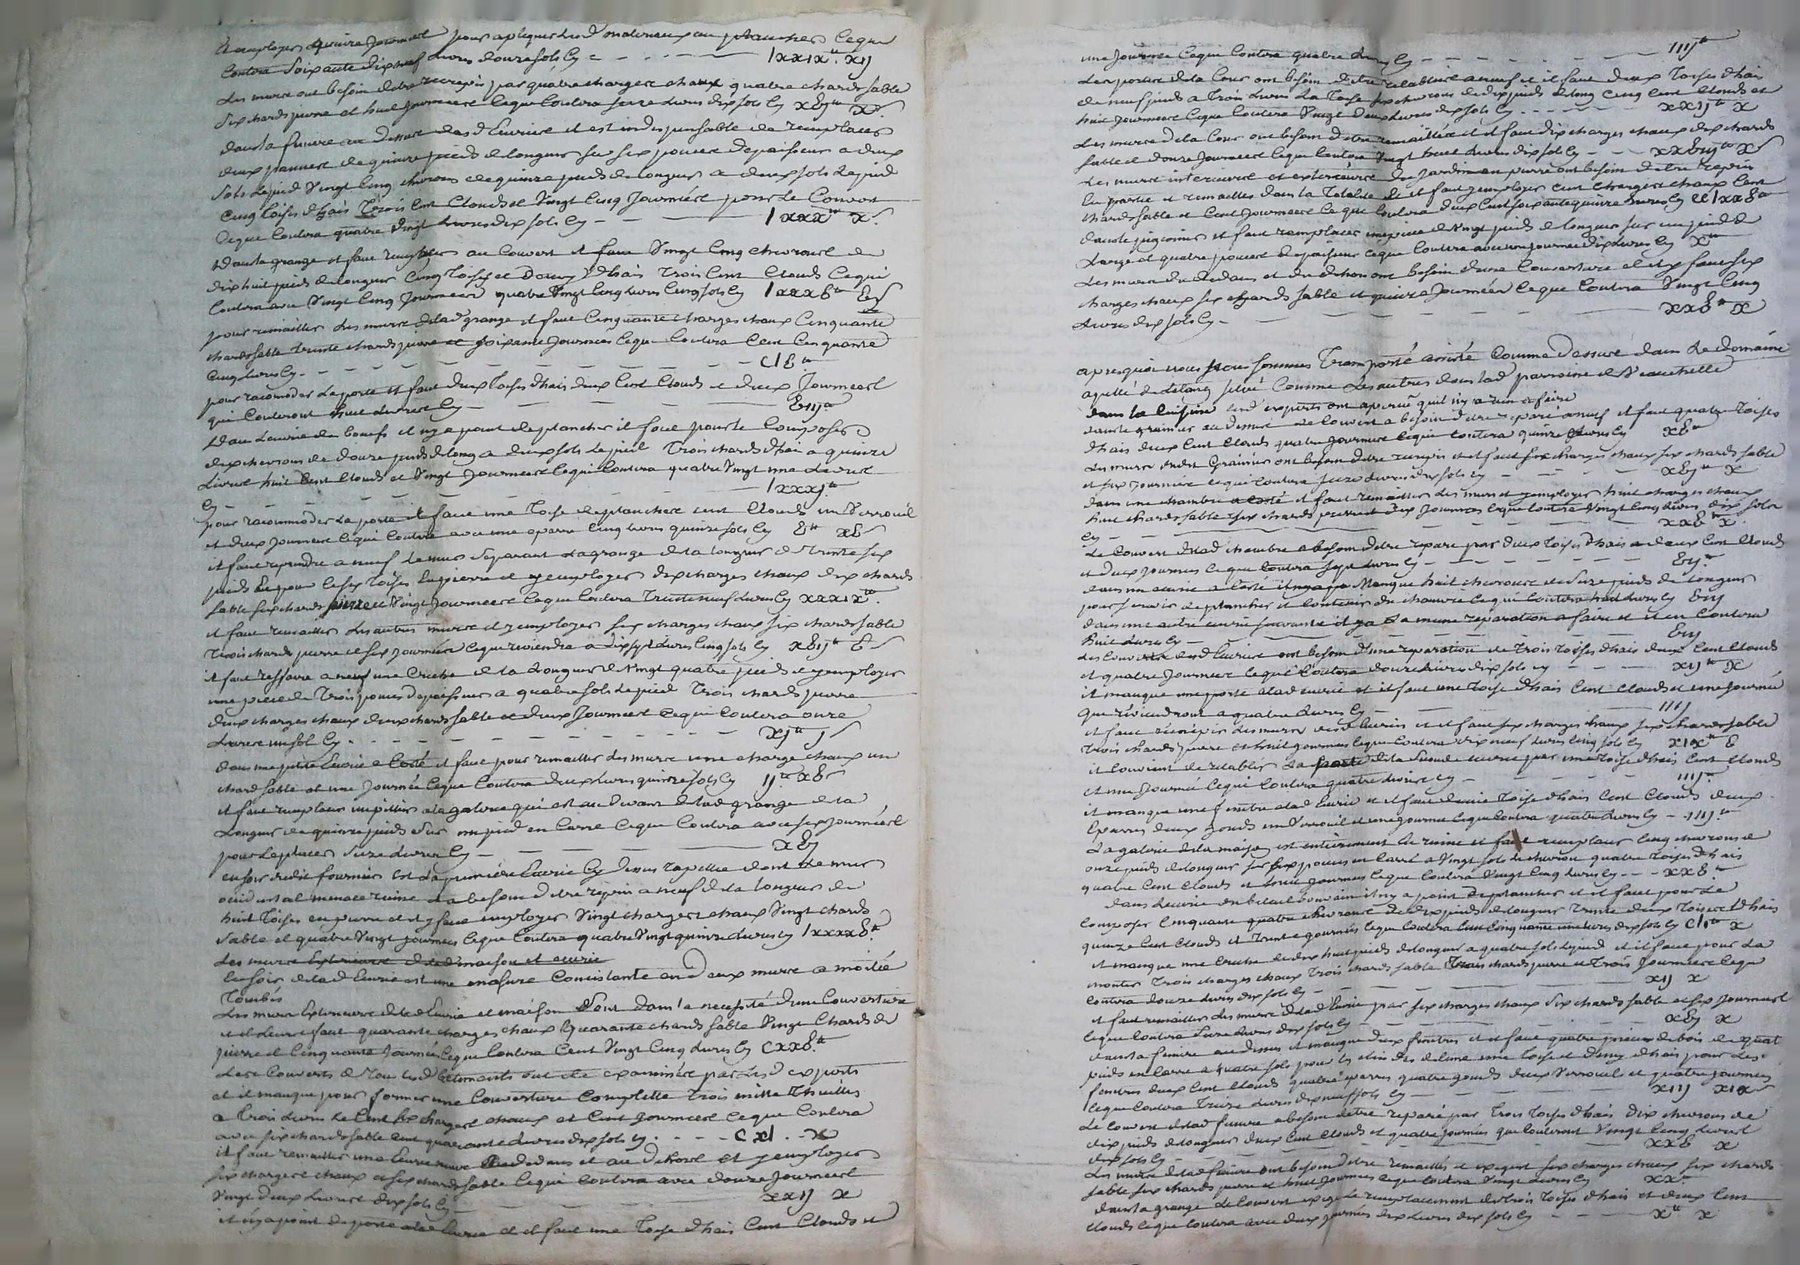 a employer quinze journees pour apliquer les d materiaux au plancher Ceque
Coutera soixante dix neuf Livres douze sols Cy - - - - lxxix.tt xij
Les murs ont besoin detre recrepis par quatre charges chaux quatre chards sable
six chards pierre et huit Journees Ceque Coutera seize Livres dix sols Cy x8j.tt x s
dans la feniere au dessus des d Ecuries il est indispensable de remplacer
deux pannes de quinze pieds de longeur sur six pouces depaisseur a deux
sols Le pied Vingt Cinq chevrons de quinze pieds de longeur a deux sols Le pied
Cinq toises d'hais Trois Cent Clouds et Vingt Cinq Journées pour le Couvert
Ceque Coutera quatre Vingt Livres dix sols Cy - - - lxxx.tt x s
dans la grange il faut remplacer au Couvert il faut Vingt Cinq chevrons de
dix huit pieds de longeur Cinq toises et Demy d'hais Trois Cent Clouds Ce qui
Coutera avec Vingt Cinq Journées quatre Vingt Cinq Livres Cinq sols Cy lxxx8.tt 8 s
pour remailler Les murs de lad grange il faut Cinquante charges chaux Cinquante
chards sable trente chards pierre et soixante Journees Ceque Coutera Cent Cinquante
Cinq Livres Cy - - - - - - - - - cl8.tt
pour racomoder La porte il faut deux Toises d'hais deux Cent Clouds et deux Journees
qui Couteront huit Livres Cy - - - - 8iij.tt
dans Lecurie des boeufs il ny a point de plancher il faut pour le Composer
dix chevrons de douze pieds de long a deux sols Le pied Trois chards d'hais a quinze
Livres huit Cent Clouds et Vingt Journees Ce qui Coutera quatre Vingt une Livres
Cy - - - - - - - - lxxxj.tt
pour racommoder La porte il faut une Toise de planches cent Clouds un Verrouil
et deux Journees Ce qui Coutera avec une eparre Cinq Livres quinze sols Cy 8.tt x8 s
il faut reprendre a neuf Le mur separant La grange de la longeur de Trente six
pieds sur Toises en pierre et y employer dix charges chaux dix chards
sable six chards pierre et Vingt Journees Ceque Coutera Trente neuf Livres Cy xxxix.tt
il faut remailler Les autres murs et y employer six charges chaux six chards sable
Trois chards pierre et six Journees Ceque reviendra a dix sept Livres Cinq sols Cy x8ij.tt 8 s
il faut reffaire a neuf une Creche de la longeur de Vingt quatre pieds et y employer
une piece de Trois pouces d'epaisseur a quatre sols Le pied Trois chards pierre
deux charges chaux deux chards sable et deux Journees Ce qui Coutera onze
Livres un sol Cy - - - - - - - - xj.tt j s
Dans une petite Ecurie a Coté il faut pour remailler Les murs une charge chaux un
chard sable et une Journée Ceque Coutera deux Livres quinze sols Cy ij.tt x8 s
il faut remplacer un pillier a la galerie qui est au Devant de lad grange de la
Longeur de quinze pieds sur un pied en Carré Ceque Coutera avec six Journées
pour Le placer seize Livres Cy - - - x8j
huit Toises en pierre et il y faut employer Vingt charges chaux Vingt chards
sable et quatre Vingt Journees Ceque Coutera quatre Vingt quinze Livres Cy lxxxx8.tt
Les murs Exterieurs de lad maison et ecurie
Ensoir de lad Ecurie est une masure Consistante en Deux murs a moitié
Tombés
Les murs Exterieurs de lad Ecurie et maison sont dans la necessité d'une Couverture
et il leur faut quarante charges chaux Quarante chards sable Vingt Chards de
pierre et Cinquante Journees Ceque Coutera Cent Vingt Cinq Livres Cy cxx8.tt
Les Couverts de Tous Les d batiments ont été examinés par Les d experts
et il manque pour former une Couverture Complette Trois mille Thuilles
a Trois Livres Le Cent six charges chaux et Cent Journees Ceque Coutera
avec six chards sable Cent quarante Livres dix sols Cy - - - - cxl . . x
il faut remailler une Ecurie murs au dedans et au Dehors et y employer
six charges chaux et six chards sable Ce qui Coutera avec douze Journees
Vingt deux Livres dix sols Cy - - - - - xxij x
il n'y a point de porte a lad Ecurie et il faut une Toise d'hais Cent Clouds et
une Journée Ce qui Coutera quatre Livres Cy - - - - - - iiij.tt
Les portes de la Cour ont besoin detre retablies a neuf et il faut deux Toises d'hais
de neuf pieds a Trois Livres La Toise six chevrons de dix pieds de long Cinq Cent Clouds et
huit Journees Ceque Coutera Vingt Deux Livres dix sols Cy - - - xxij.tt x
Les murs de la Cour ont besoin detre remaillés et il faut dix charges chaux dix chards
sable et douze Journees Ceque Coutera Vingt huit Livres dix sols Cy - - xx8iij.tt x s
Les murs interieurs et exterieurs du Jardin en pierre ont besoin detre repris
En partie et remaillés dans La Totalité et il faut y employer Cent Charges chaux Cent
chards sable et Cent Journees Ceque Coutera deux Cent soixante quinze Livres Cy cclxx8.tt
dans le pigeonier il faut remplacer une piece de Vingt pieds de longeur sur un pied de
Large et quatre pouces d'epaisseur Ceque Coutera avec une Journée dix Livres Cy x.tt
Les murs du dedans et du dehors ont besoin d'une Couverture et il y faut six
charges chaux six chards sable et quinze Journées Ceque Coutera Vingt Cinq
Livres dix sols Cy - - - - - - - xx8.tt x
apres quoi nous nous sommes Transporté assisté Comme Dessus dans Le Domaine
apellé de Letang situé Comme Les autres dans lad parroisse de
dans La Cuisine Les d experts ont aperçu qu'il n'y a rien a faire
dans le grainier au dessus Le Couvert a besoin d'etre reparé a neuf il faut quatre Toises
d'hais deux Cent Clouds quatre Journees Ceque Coutera quinze Livres Cy x8.tt
Les murs dudit Grainier ont besoin detre recrepis et il faut six charges chaux six chards sable
et six Journees Ceque Coutera seize Livres dix sols Cy - - - x8j.tt x
dans une chambre a Coté il faut remailler Les murs et y employer huit charges chaux
huit chards sable six chards pierre et dix Journees Ceque Coutera Vingt Cinq Livres dix sols
Cy - - - - - - - xx8.tt x
Le Couvert de lad chambre a besoin detre reparé par deux Toises d'hais et deux Cent Clouds
et deux Journees Ceque Coutera sept Livres Cy - - - - 8ij.tt
dans une ecurie a Coté il manque huit chevrons de seize pieds de longeur
pour servir de plancher et soutenir du chanvre Ce qui Coutera huit Livres Cy 8iij
dans une autre ecurie suivante il y a La meme reparation a faire et il en Coutera
huit Livres Cy - - - - - - 8iij
Les Couverts des d Ecuries ont besoin d'une reparation de Trois Toises d'hais deux Cent Clouds
et quatre Journees Ceque Coutera douze Livres dix sols Cy - - - xij.tt x
il manque une porte a lad ecurie et il faut une Toise d'hais Cent Clouds et une Journée
Que reviendront a quatre Livres Cy - - - - - iiij
il faut recrepir Les murs des d Ecuries et il faut six charges chaux six chards sable
Trois chards pierre et huit Journees Ceque Coutera dix neuf Livres Cinq sols Cy xix.tt 8
il Convient de retablir La porte de la seconde ecurie par une Toise d'hais Cent Clouds
et une Journée Ce qui Coutera quatre Livres Cy - - - - iiij.tt
il manque une fenetre a lad Ecurie et il faut demie Toise d'hais Cent Clouds deux
Eparres deux gonds un Verrouil et une Journee Ceque Coutera quatre Livres Cy - iiij.tt
La galerie de la maison est entierement en ruine il faut remplacer Cinq chevrons de
onze pieds de longeur sur six pouces en Carré a Vingt sols Le chevron quatre Toises d'hais
quatre Cent Clouds et huit Journees Ceque Coutera Vingt Cinq Livres Cy - - xx8.tt
dans Lecurie du betail bouvain il ny a point de plancher et il faut pour Le
Composer Cinquante quatre chevrons de dix pieds de longeur Trente deux Toises d'hais
quinze Cent Clouds et Trente Journées Ceque Coutera Cent Cinquante une Livres dix sols Cy clj.tt x
il manque une Creche de dix huit pieds de longeur a quatre sols Le pied et il faut pour La
monter Trois charges chaux Trois chards sable Trois chards pierre et Trois Journees Ceque
Coutera Douze Livres dix sols Cy - - - - - - xij x
il faut remailler Les murs de lad Ecurie par six charges chaux six chards sable et six Journees
Ceque Coutera seize Livres dix sols Cy - - - - - x8j x
dans la feniere au dessus il manque deux fenetres et il faut quatre pieces de bois de quatre
pieds en Carré a quatre sols pour une Toise et Demy d'hais pour Les
fenetres deux Cent Clouds quatre eparres quatre gonds deux Verrouil et quatre Journees
Ceque Coutera Treize Livres dix neuf sols Cy - - - - xiij xix
Le Couvert de lad feniere a besoin detre reparé par Trois Toises d'hais dix chevrons de
dix pieds de longeur deux Cent Clouds et quatre Journées que Couteront Vingt Cinq Livres
dix sols Cy - - - - - - - xx8 x
Les murs de lad feniere ont besoin detre remaillés et exigent six charges chaux six chards
sable six chards pierre et huit Journees Ceque Coutera Vingt Livres Cy - - xx.tt
dans la grange Le Couvert exige Le remplacement de trois Toises d'hais et deux Cent
Clouds Ceque Coutera avec deux Journees dix Livres dix sols Cy - - - x.tt x